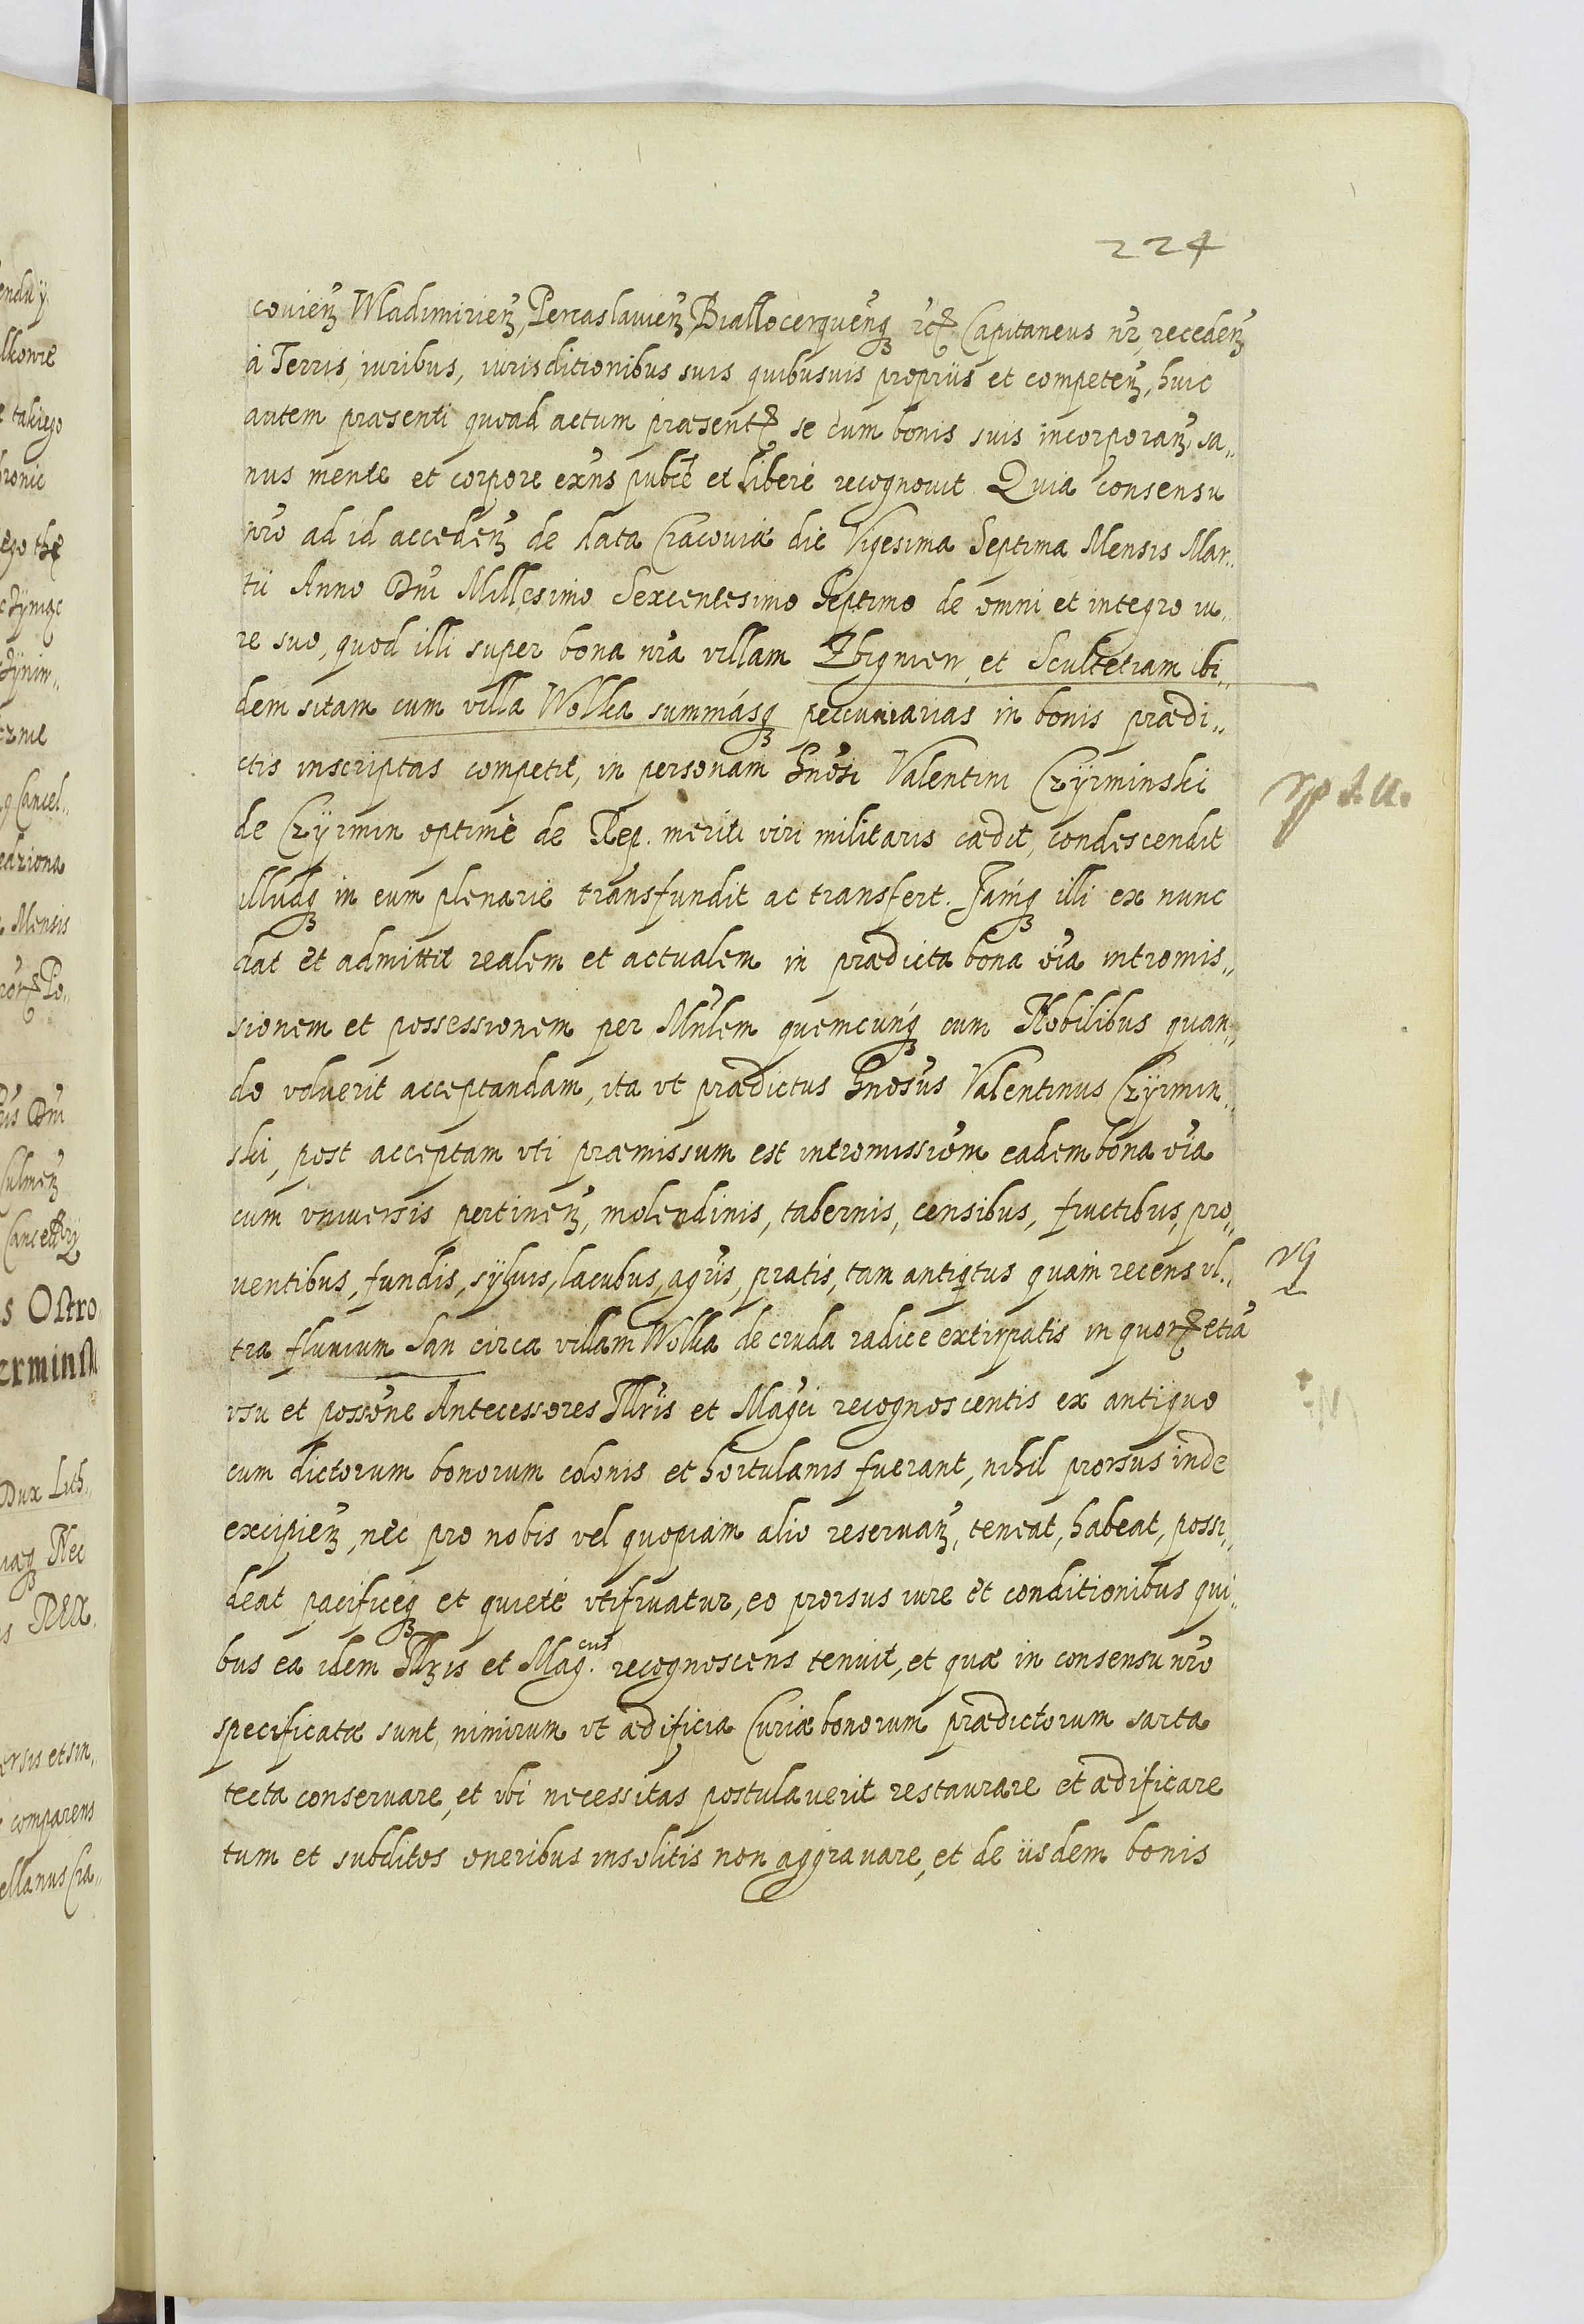 224
covien̄ Wladimirien̄, Pereaslavien̄, Biallocerquen̄q₃ etc̄ Capitaneus nr̄, receden̄
à Terris, iuribus, iurisditionibus suis quibusuis proprijs et competen̄, huic
autem præsenti quoad actum præsentē se cum bonis suis incorporan̄, sa„
nus mente et corpore exn̄s pubcē et liberè recognouit. Quia consensu
nr̄o ad id acceden̄ de data Cracoviæ die Vigesima Septima Mensis Mar„
tii Anno Dn̄i Millesimo Sexcentesimo Septimo de omni et integro iu„
re suo, quod illi super bona nr̄a villam Zbigniew, et Scultetiam ibi„
dem sitam cum villa Wolka summásq₃ peccuniarias in bonis prædi„
ctis inscriptas competit, in personam Gn̄osi Valentini Czÿrminski
de Czÿrmin optimè de Rep. meriti viri militaris cædit, condescendit
illudq₃ in eum plenariè transfundit ac transfert. Iamq₃ illi ex nunc
dat et admittit realem et actualem in prædicta bona oīa intromis„
sionem et possessionem per Mn̄lem quemcunq₃ cum Nobilibus quan„
do voluerit acceptandam, ita vt prædictus Gn̄osus Valentinus Czÿrmin„
ski, post acceptam vti præmissum est intromissiōm eadem bona oīa
cum vniuersis pertinen̄, molendinis, tabernis, censibus, fructibus, pro„
uentibus, fundis, sÿluis, lacubus, agris, pratis, tam antiqitus quàm recens vl„
tra fluuium San circa villam Wolka de cruda radice extirpatis in quorum etiā
vsu et possōne Antecessores Illr̄is et Magc̄i recognoscentis ex antiquo
cum dictorum bonorum colonis et hortulanis fuerant, nihil prorsus inde
excipien̄, nec pro nobis vel quopiam alio reseruan̄, teneat, habeat, possi„
deat pacificeq₃ et quietè vtifruatur, eo prorsus iure et conditionibus qui„
bus ea idem Illr̄is et Mag.cus recognoscens tenuit, et quæ in consensu nr̄o
specificatæ sunt, nimirum vt ædificia Curiæ bonorum prædictorum sarta
tecta conseruare, et vbi necessitas postulauerit restaurare et ædificare
tum et subditos oneribus insolitis non aggrauare, et de iisdem bonis